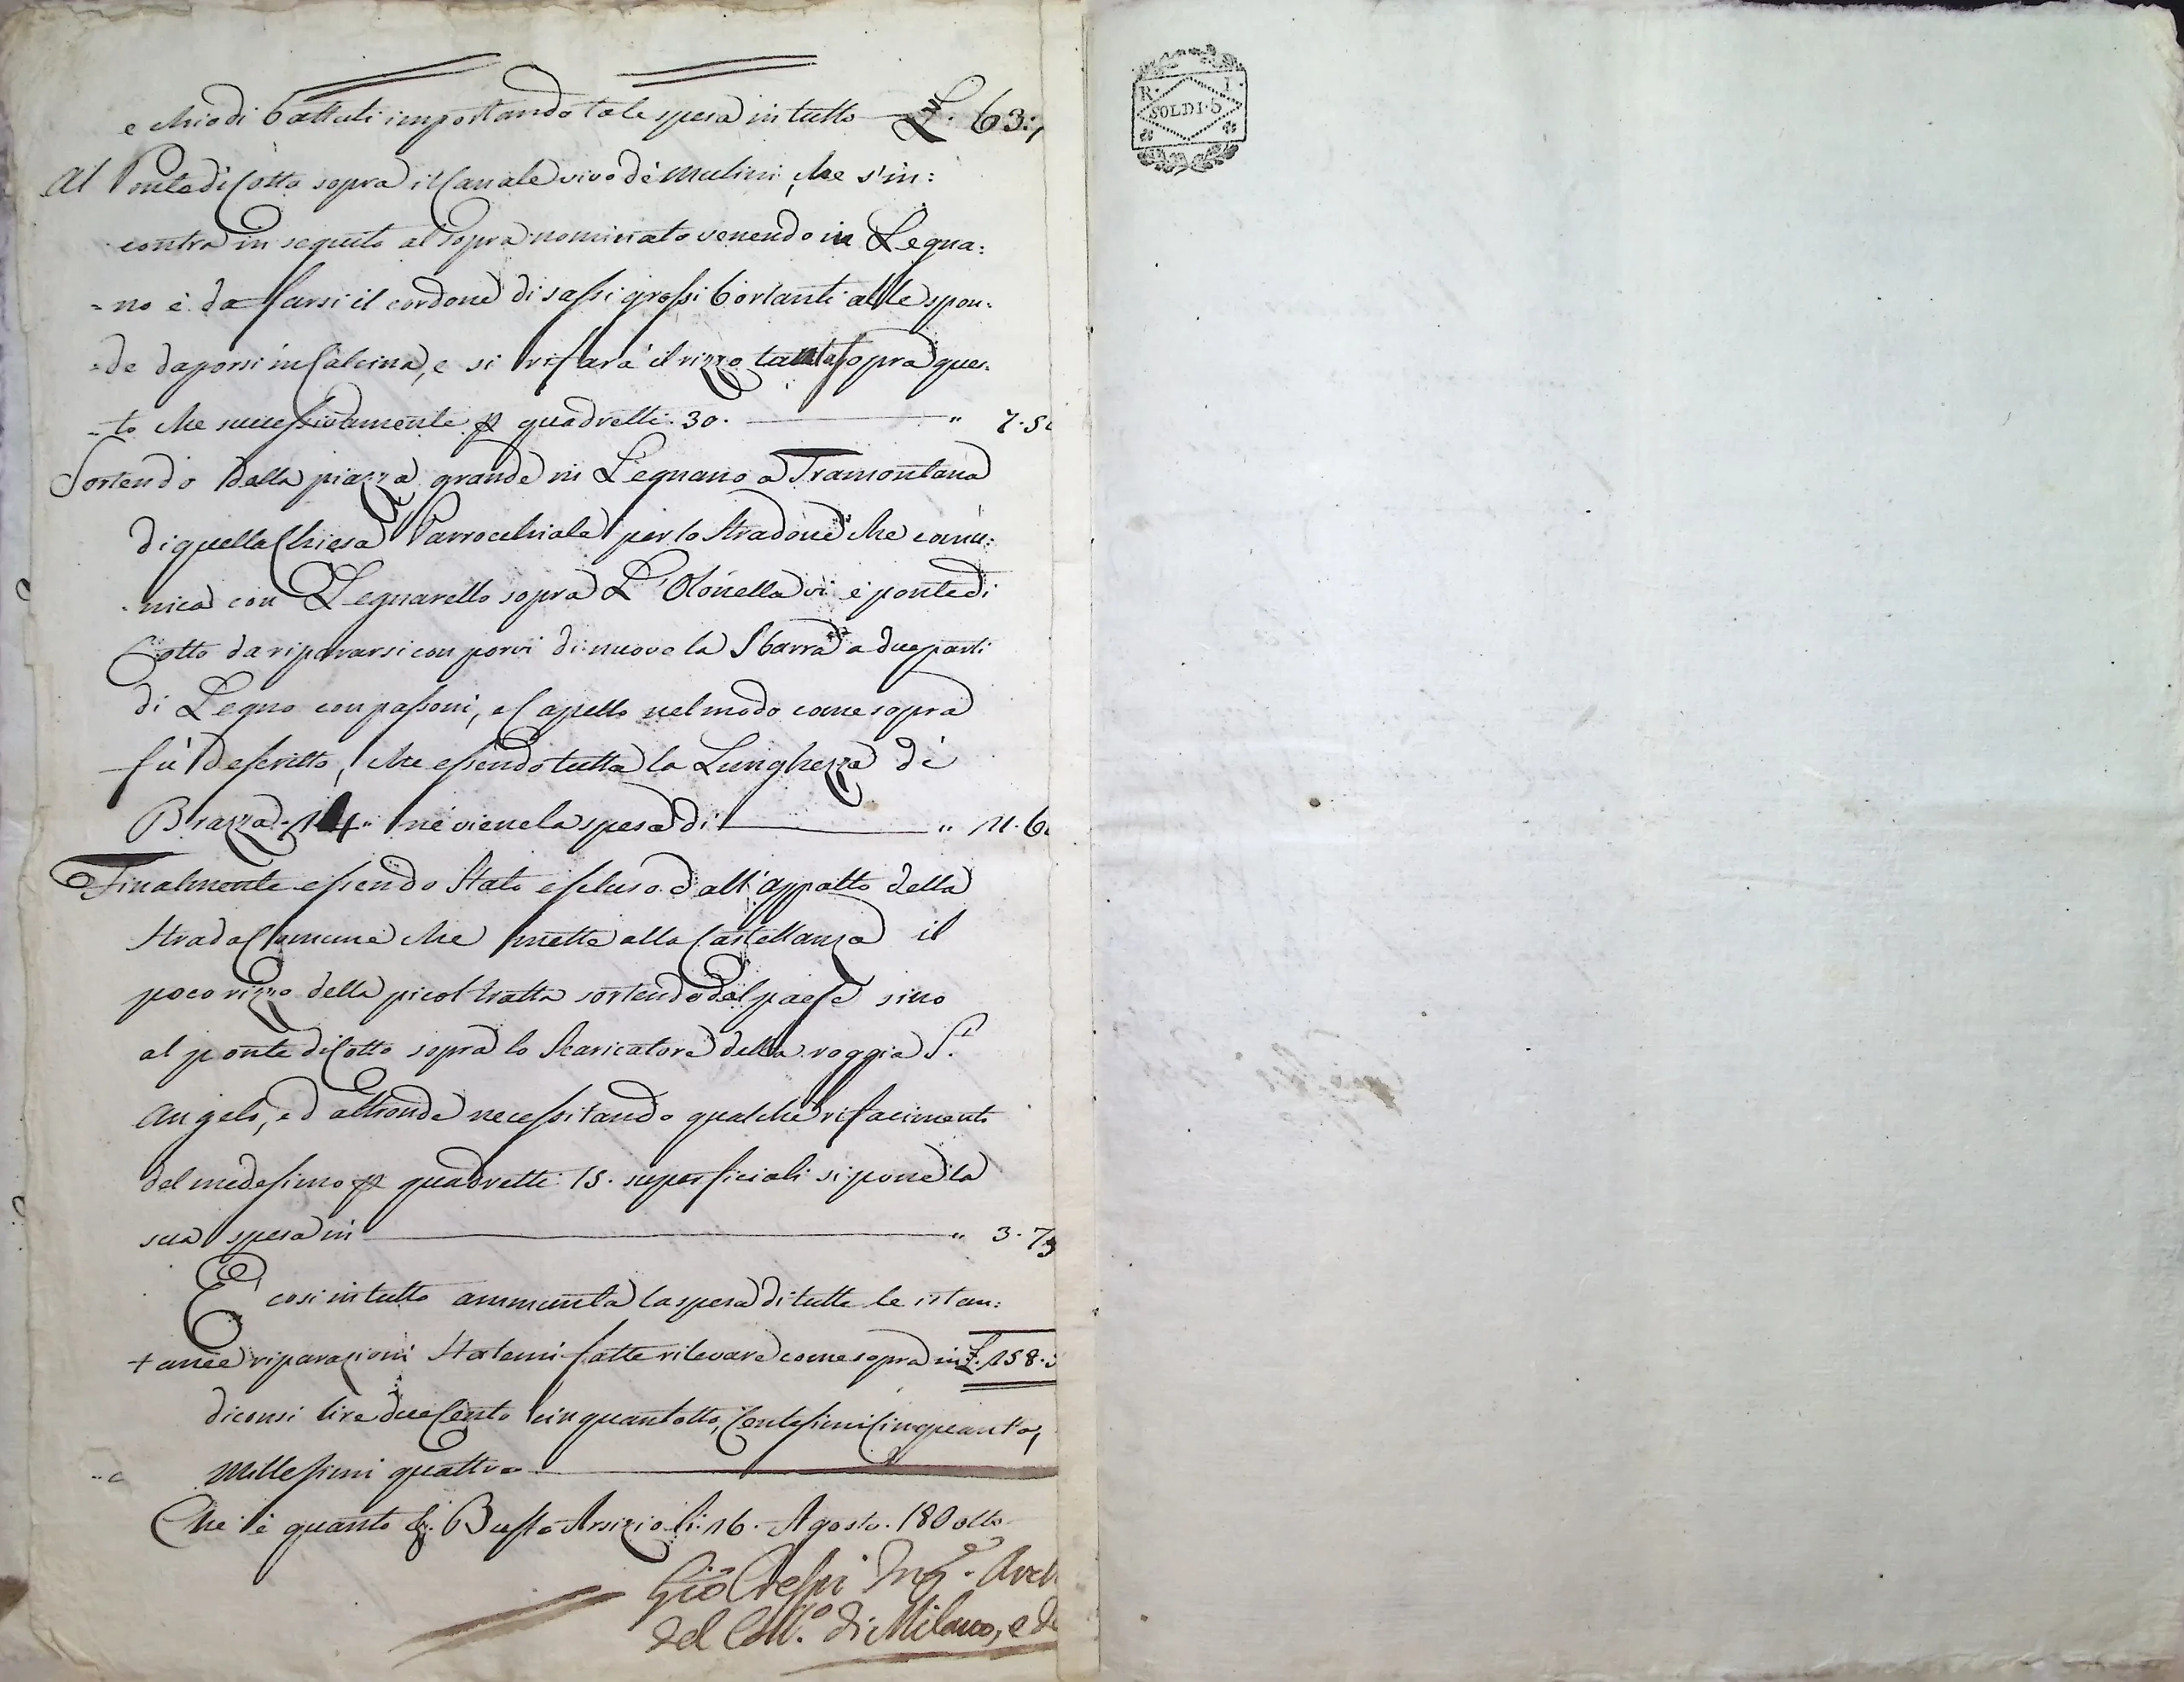 e chiodi battuti importando tale spesa in tutto £. 63:
Al Ponte di Cotto sopra il Canale vivo dè Mulini, che s'in:
contra in seguito al sopra nominato venendo in Legna:
=no è da farsi il cordone di sassi grossi borlanti alle spon:
=de da porsi in Calcina, e si rifarà il rizzo tanto sopra ques:
=to che successivamente per quadretti 30. " 7.5
Sortendo dalla piazza grande in Legnano a Tramontana
di quella Chiesa Parrocchiale per lo Stradone che comu:
nica con Legnarello sopra L'Olonella vi è ponte di
Cotto da ripararsi con porvi di nuovo la Sbarra a due parti
di Legno con passoni, e Capello nel modo come sopra
fù descritto, che essendo tutta la Lunghezza dè
Brazza 14" ne viene la spesa di " 11.6
Finalmente essendo stato escluso dall'appalto della
Strada Comune che mette alla Castellanza il
poco rizzo della picol tratta sortendo dal paese sino
al ponte di Cotto sopra lo Scaricatore della roggia S.t
Angelo, ed altronde necessitando qualche rifacimento
del medesimo per quadretti 15. superficiali si pone la
sua spesa in " 3.75
E così in tutto ammonta la spesa di tutte le istan:
tanee riparazioni statemi fatte rilevare come sopra in £. 258.
diconsi lire due Cento cinquantotto, Centesimi Cinquanta,
Millesimi quattro
Che è quanto &. Busto Arsizio li 16. Agosto. 180otto
Gio Crespi Ing.e Arch
del Coll.o di Milano, e d
R. I.
SOLDI. 5